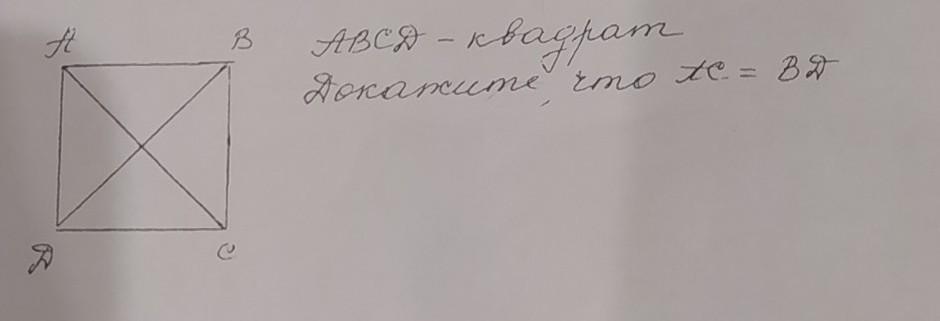 A B ABCD - квадрат
Докажите, что AC = BD
D C